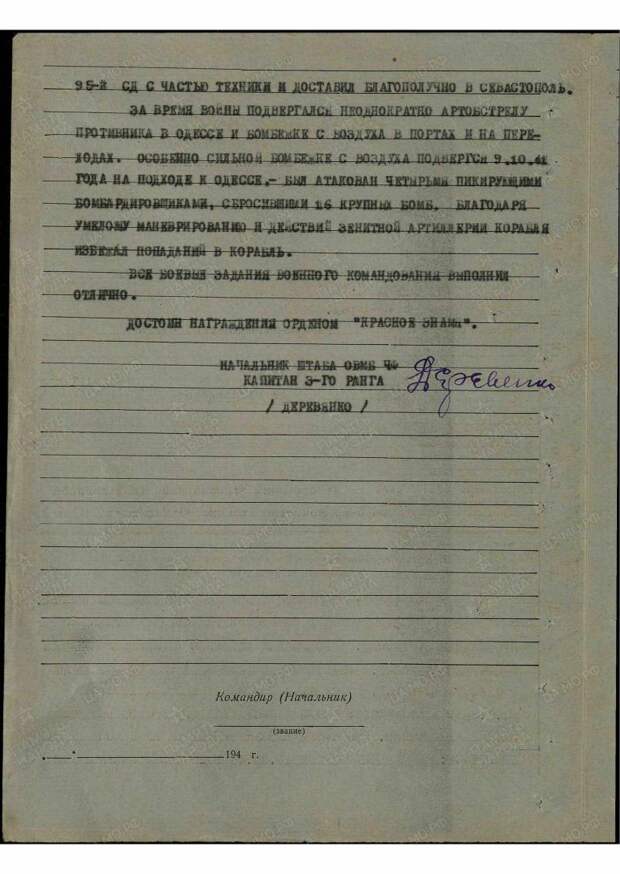 95-й СД С ЧАСТЬЮ ТЕХНИКИ И ДОСТАВИЛ БЛАГОПОЛУЧНО В СЕВАСТОПОЛЬ.
ЗА ВРЕМЯ ВОЙНЫ ПОДВЕРГАЛСЯ НЕОДНОКРАТНО АРТОБСТРЕЛУ
ПРОТИВНИКА В ОДЕССЕ И БОМБЕЖКЕ С ВОЗДУХА В ПОРТАХ И НА ПЕРЕ-
ХОДАХ. ОСОБЕННО СИЛЬНОЙ БОМБЕЖКЕ С ВОЗДУХА ПОДВЕРГСЯ 9.10.41
ГОДА НА ПОДХОДЕ К ОДЕССЕ,- БЫЛ АТАКОВАН ЧЕТЫРЬМЯ ПИКИРУЮЩИМИ
БОМБАРДИРОВЩИКАМИ, СБРОСИВШИМИ 16 КРУПНЫХ БОМБ. БЛАГОДАРЯ
УМЕЛОМУ МАНЕВРИРОВАНИЮ И ДЕЙСТВИЙ ЗЕНИТНОЙ АРТИЛЛЕРИИ КОРАБЛЯ
ИЗБЕЖАЛ ПОПАДАНИЙ В КОРАБЛЬ.
ВСЕ БОЕВЫЕ ЗАДАНИЯ ВОЕННОГО КОМАНДОВАНИЯ ВЫПОЛНИЛ
ОТЛИЧНО.
ДОСТОИН НАГРАЖДЕНИЯ ОРДЕНОМ "КРАСНОЕ ЗНАМЯ".
НАЧАЛЬНИК ШТАБА ОВМБ ЧФ
КАПИТАН 3-ГО РАНГА
/ ДЕРЕВЯНКО /
Командир (Начальник)
(звание)
194 г.